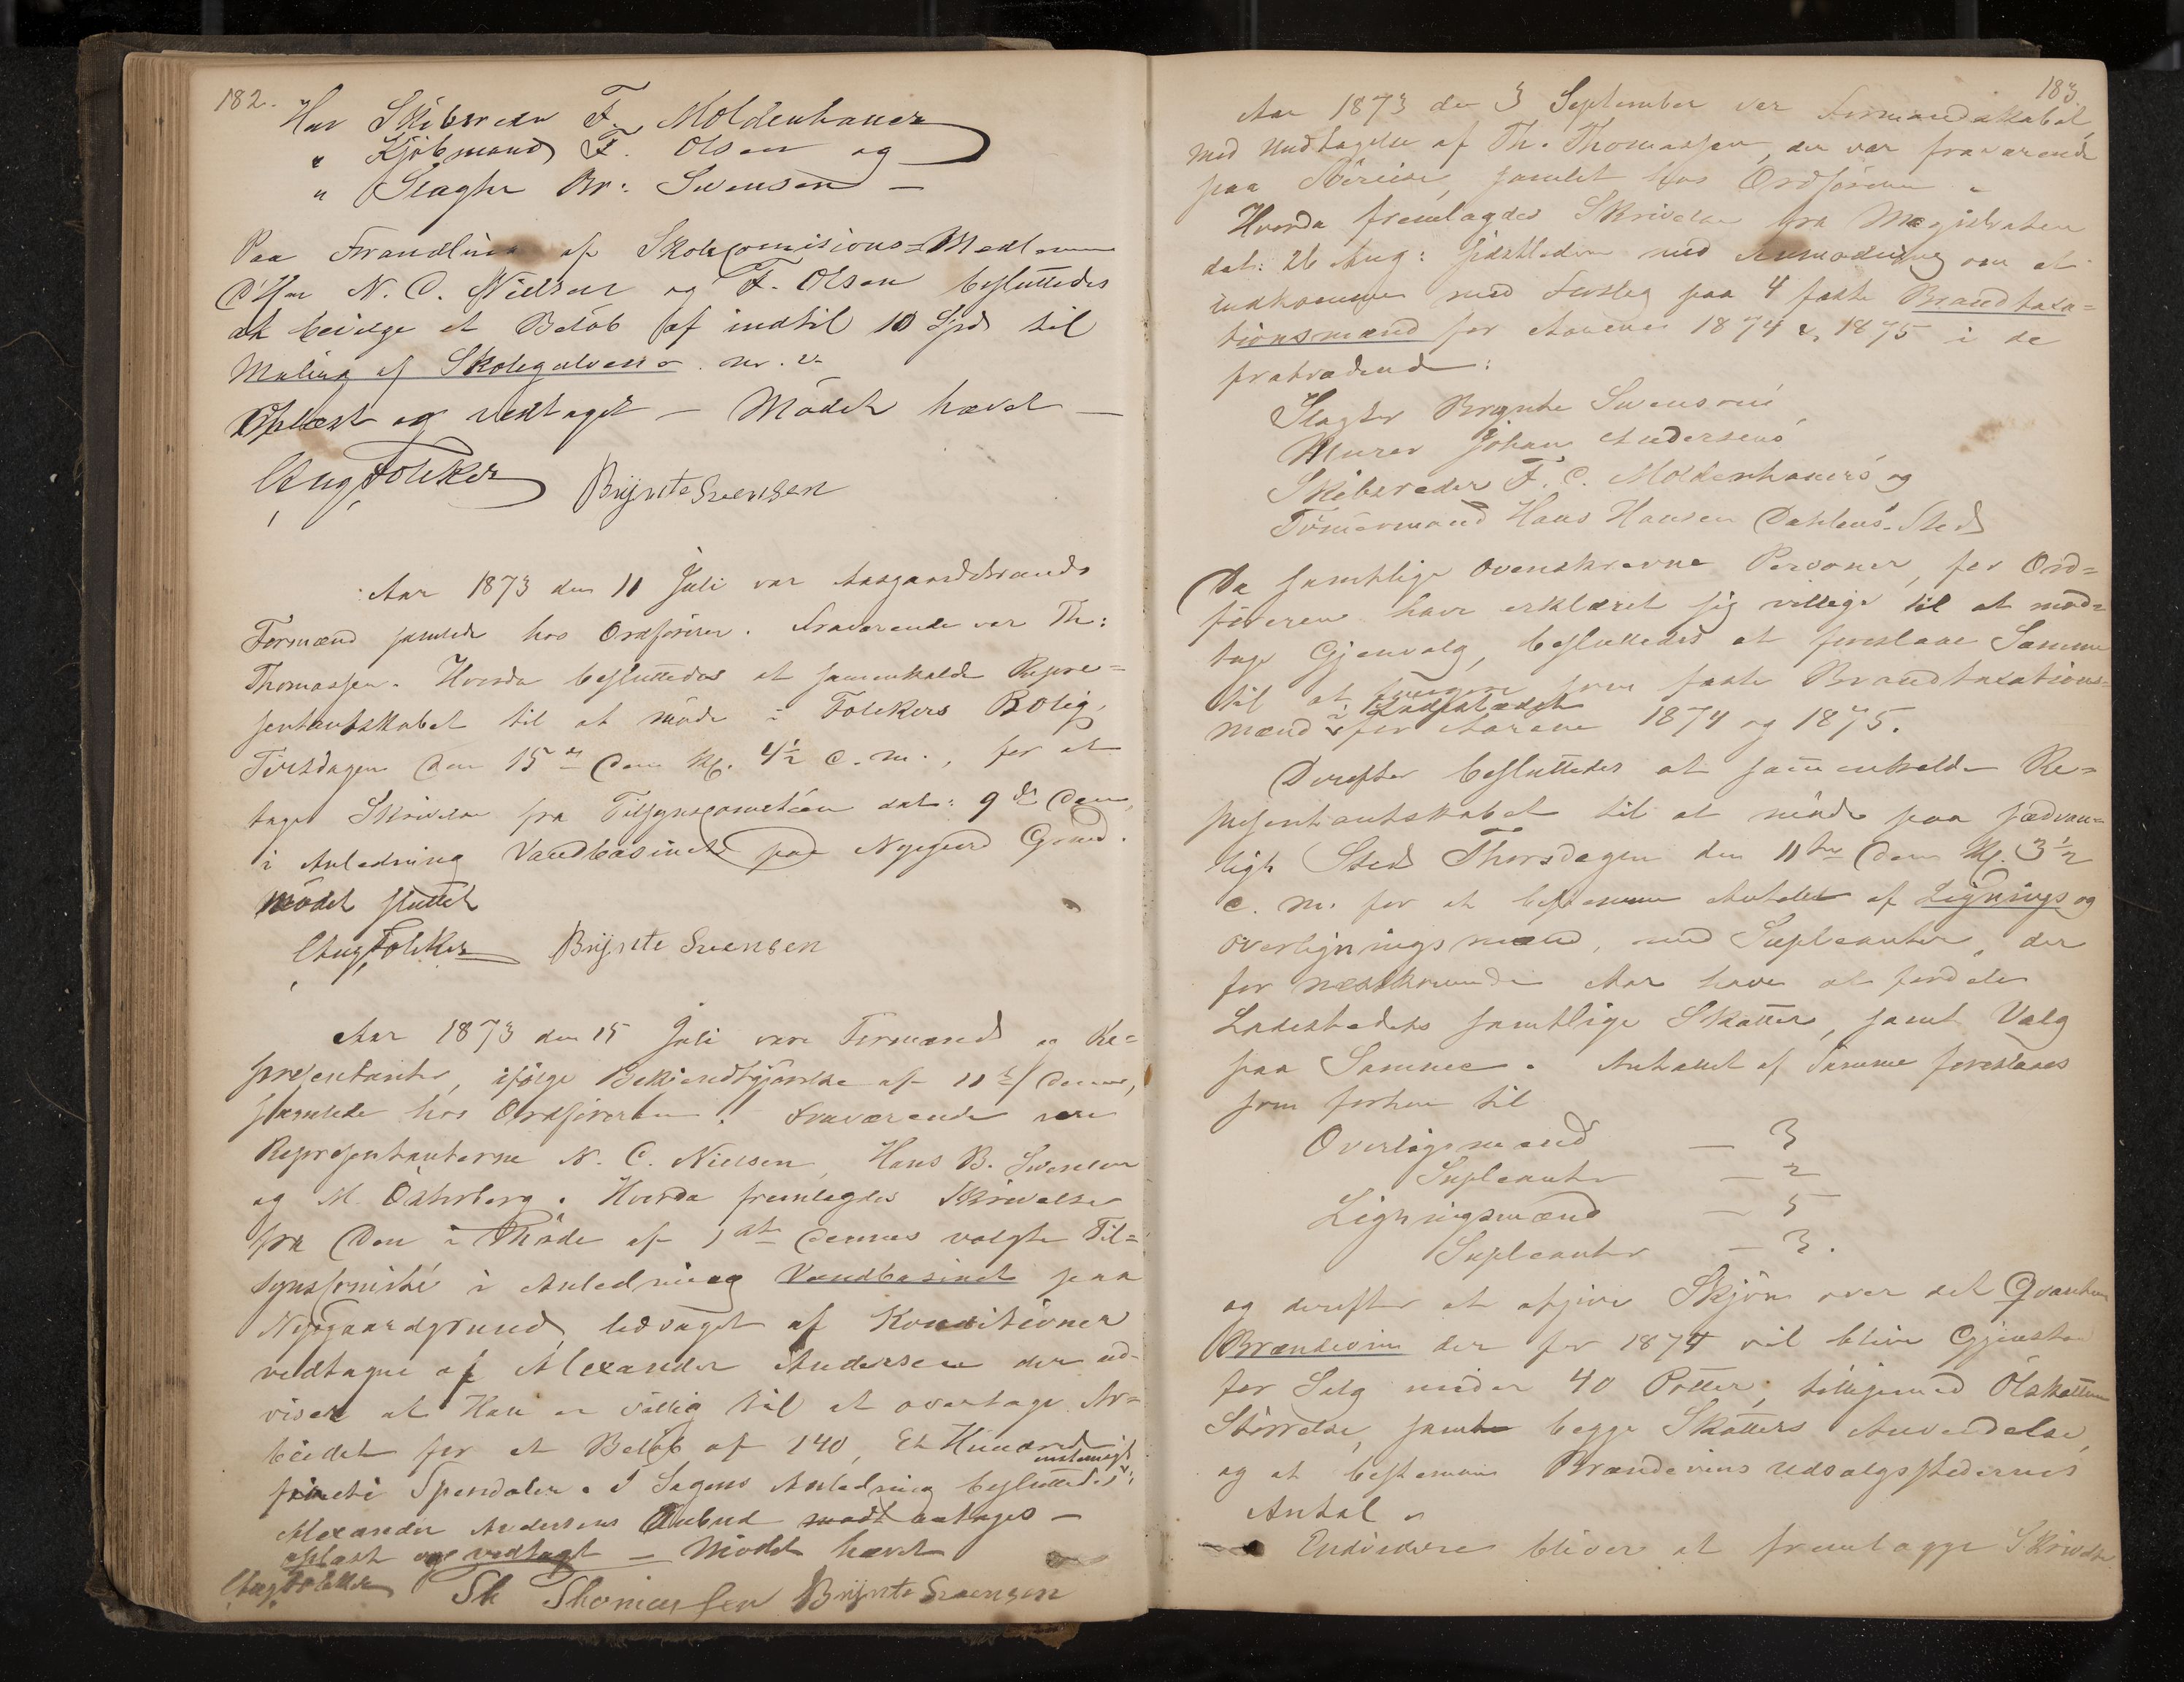 182.
Herr Skibsreder F. Moldenhauer
" Kjøbmand F. Olsen og
" Slagter Br: Svensen —
Paa Foranledning af Skolecomisions-Medlemme
D'Hrr N. C. Nielsen og F. Olsen besluttedes
at bevilge et Beløb af indtil 10 Spd til
Maling af Skolegulvene m. v.
Oplæst og vedtaget — Mödet hævet —
Aug Fölcker Brynte Svensen
Aar 1873 den 11 Juli var Aasgaardstrands
Formænd samlede hos Ordføreren. Fraværende var Th:
Thomassen. Hvorda besluttedes at sammenkalde Repre=
sentantskabet til at möde i Fölckers Bolig,
Tirsdagen den 15de dens Kl. 4½ e. m., for at
tage Skrivelse fra Tilsynscometéen dat: 9de dens,
i Anledning Vandbasinet paa Nygaard Grund.
Mödet sluttet
Aug Fölcker Brynte Svensen
Aar 1873 den 15 Juli vare Formænd og Re=
presentanter, ifølge Bekjendtgjørelse af 11te dennes,
samlede hos Ordföreren. Fraværende vare
Representanterne N. C. Nielsen, Hans B. Svensen
og M. Österberg. Hvorda fremlagdes Skrivelse
fra den i Möde af 1ste dennes valgte Til=
synskomité i Anledning Vandbasinet paa
Nygaardgrund, ledsaget af Konditioner
vedtagne af Alexander Andersen der ud-
viser at Han er villig til at overtage Ar=
beidet for et Belöb af 140, Et Hundrede
firreti Speridaler. I Sagens Anledning besluttedes enstemigt
Alexander Andersens Anbud modt antages —
oplæst og vedtagt — Mödet hævet
Aug Fölcker Th Thomassen Brynte Svensen
183
Aar 1873 den 3 September var Formandskabet,
med Undtagelse af Th. Thomassen, der var fraværende
paa Söreise, samlet hos Ordføreren.
Hvorda fremlagdes Skrivelse fra Magistraten
dat: 26 Aug: sidstleden med Anmodning om at
indkomme med Forslag paa 4 faste Brandtaxa=
tionsmænd for Aarene 1874 & 1875 i de
fratrædende:
Slagter Brynte Svensens
Murer Johan Andersens
Skibsreder F. C. Moldenhauers og
Tömmermand Hans Hansen Dahlens Sted
Da samtlige ovenskrevne Personer, for Ord=
føreren have erklæret sig villige til at mod=
tage Gjenvalg, besluttedes at foreslaae Samme
til at fungere som faste Brandtaxations=
mænd i Ladestædet for Aarene 1874 og 1875.
Derefter besluttedes at sammenkalde Re=
presentantskabet til at möde paa sædvan=
ligt Sted Thorsdagen den 11te dens Kl. 3½
e. m. for at bestemme Antallet af Lignings og
Overligningsmænd, med Supleanter, der
for næstkommende Aar have at fordele
Ladestedets samtlige Skatter, samt Valg
paa Samme. Antallet af Samme foreslaaes
som forhen til
Overligsmænd — 3
Supleanter — 2
Ligningsmænd — 5
Supleanter — 3.
og derefter at afgive Skjön over det Qvantum
Brændeviin der for 1874 vil blive Gjenstand
for Salg under 40 Potter, tilligemed Ölskattens
Störrelse, samt begge Skatters Anvendelse,
og at bestemme Brændeviins Udsalgsstedernes
Antal.
Endvidere bliver at fremlægge Skrivelse